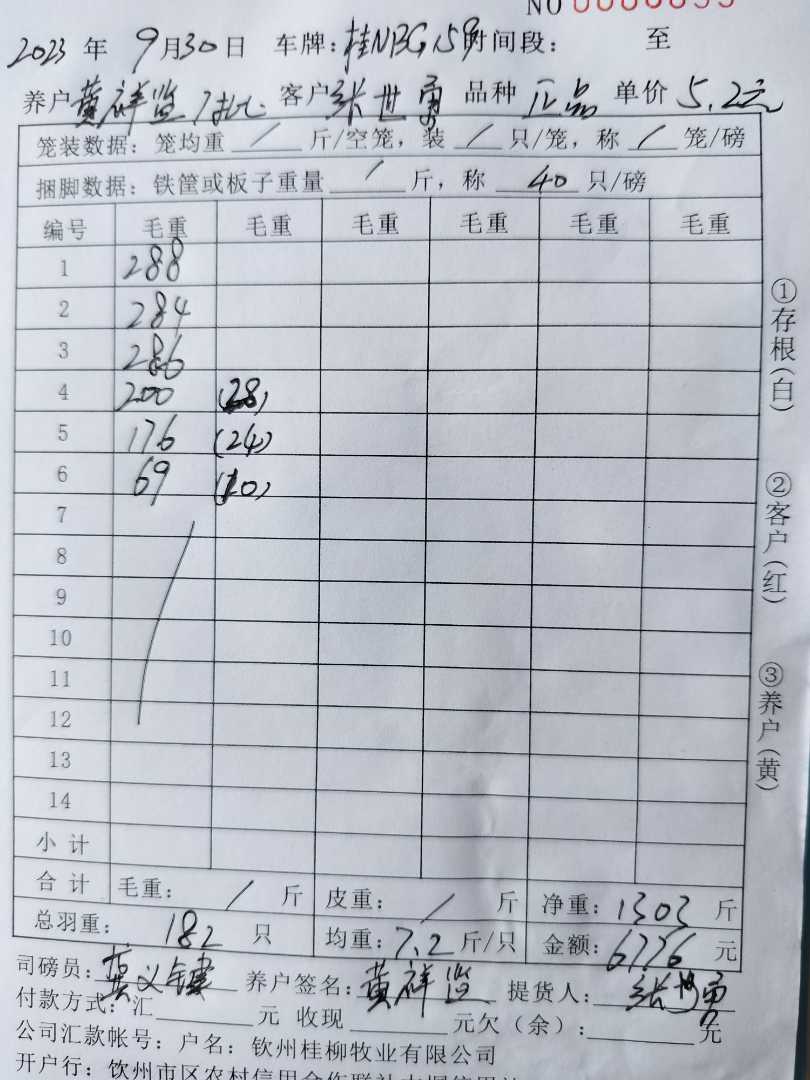 NO
2023 年 9月30日 车牌:桂NBG 时间段: 至
养户 黄祥监 客户 张世勇 品种 正品 单价 5.2元
笼装数据: 笼均重 / 斤/空笼, 装 / 只/笼, 称 / 笼/磅
捆脚数据: 铁筐或板子重量 / 斤, 称 40 只/磅
编号 毛重 毛重 毛重 毛重 毛重 毛重
1 288
2 284
3 286
4 200 (28)
5 176 (24)
6 69 (10)
7
8
9
10
11
12
13
14
小 计
合 计 毛重: / 斤 皮重: / 斤 净重: 1303 斤
总羽重: 182 只 均重: 7.2 斤/只 金额: 6776 元
司磅员: 黄义键 养户签名: 黄祥监 提货人: 张世勇
付款方式: 汇 元 收现 元欠(余): 元
公司汇款帐号: 户名: 钦州桂柳牧业有限公司
开户行: 钦州市区农村信用合作联社
①存根(白)
②客户(红)
③养户(黄)